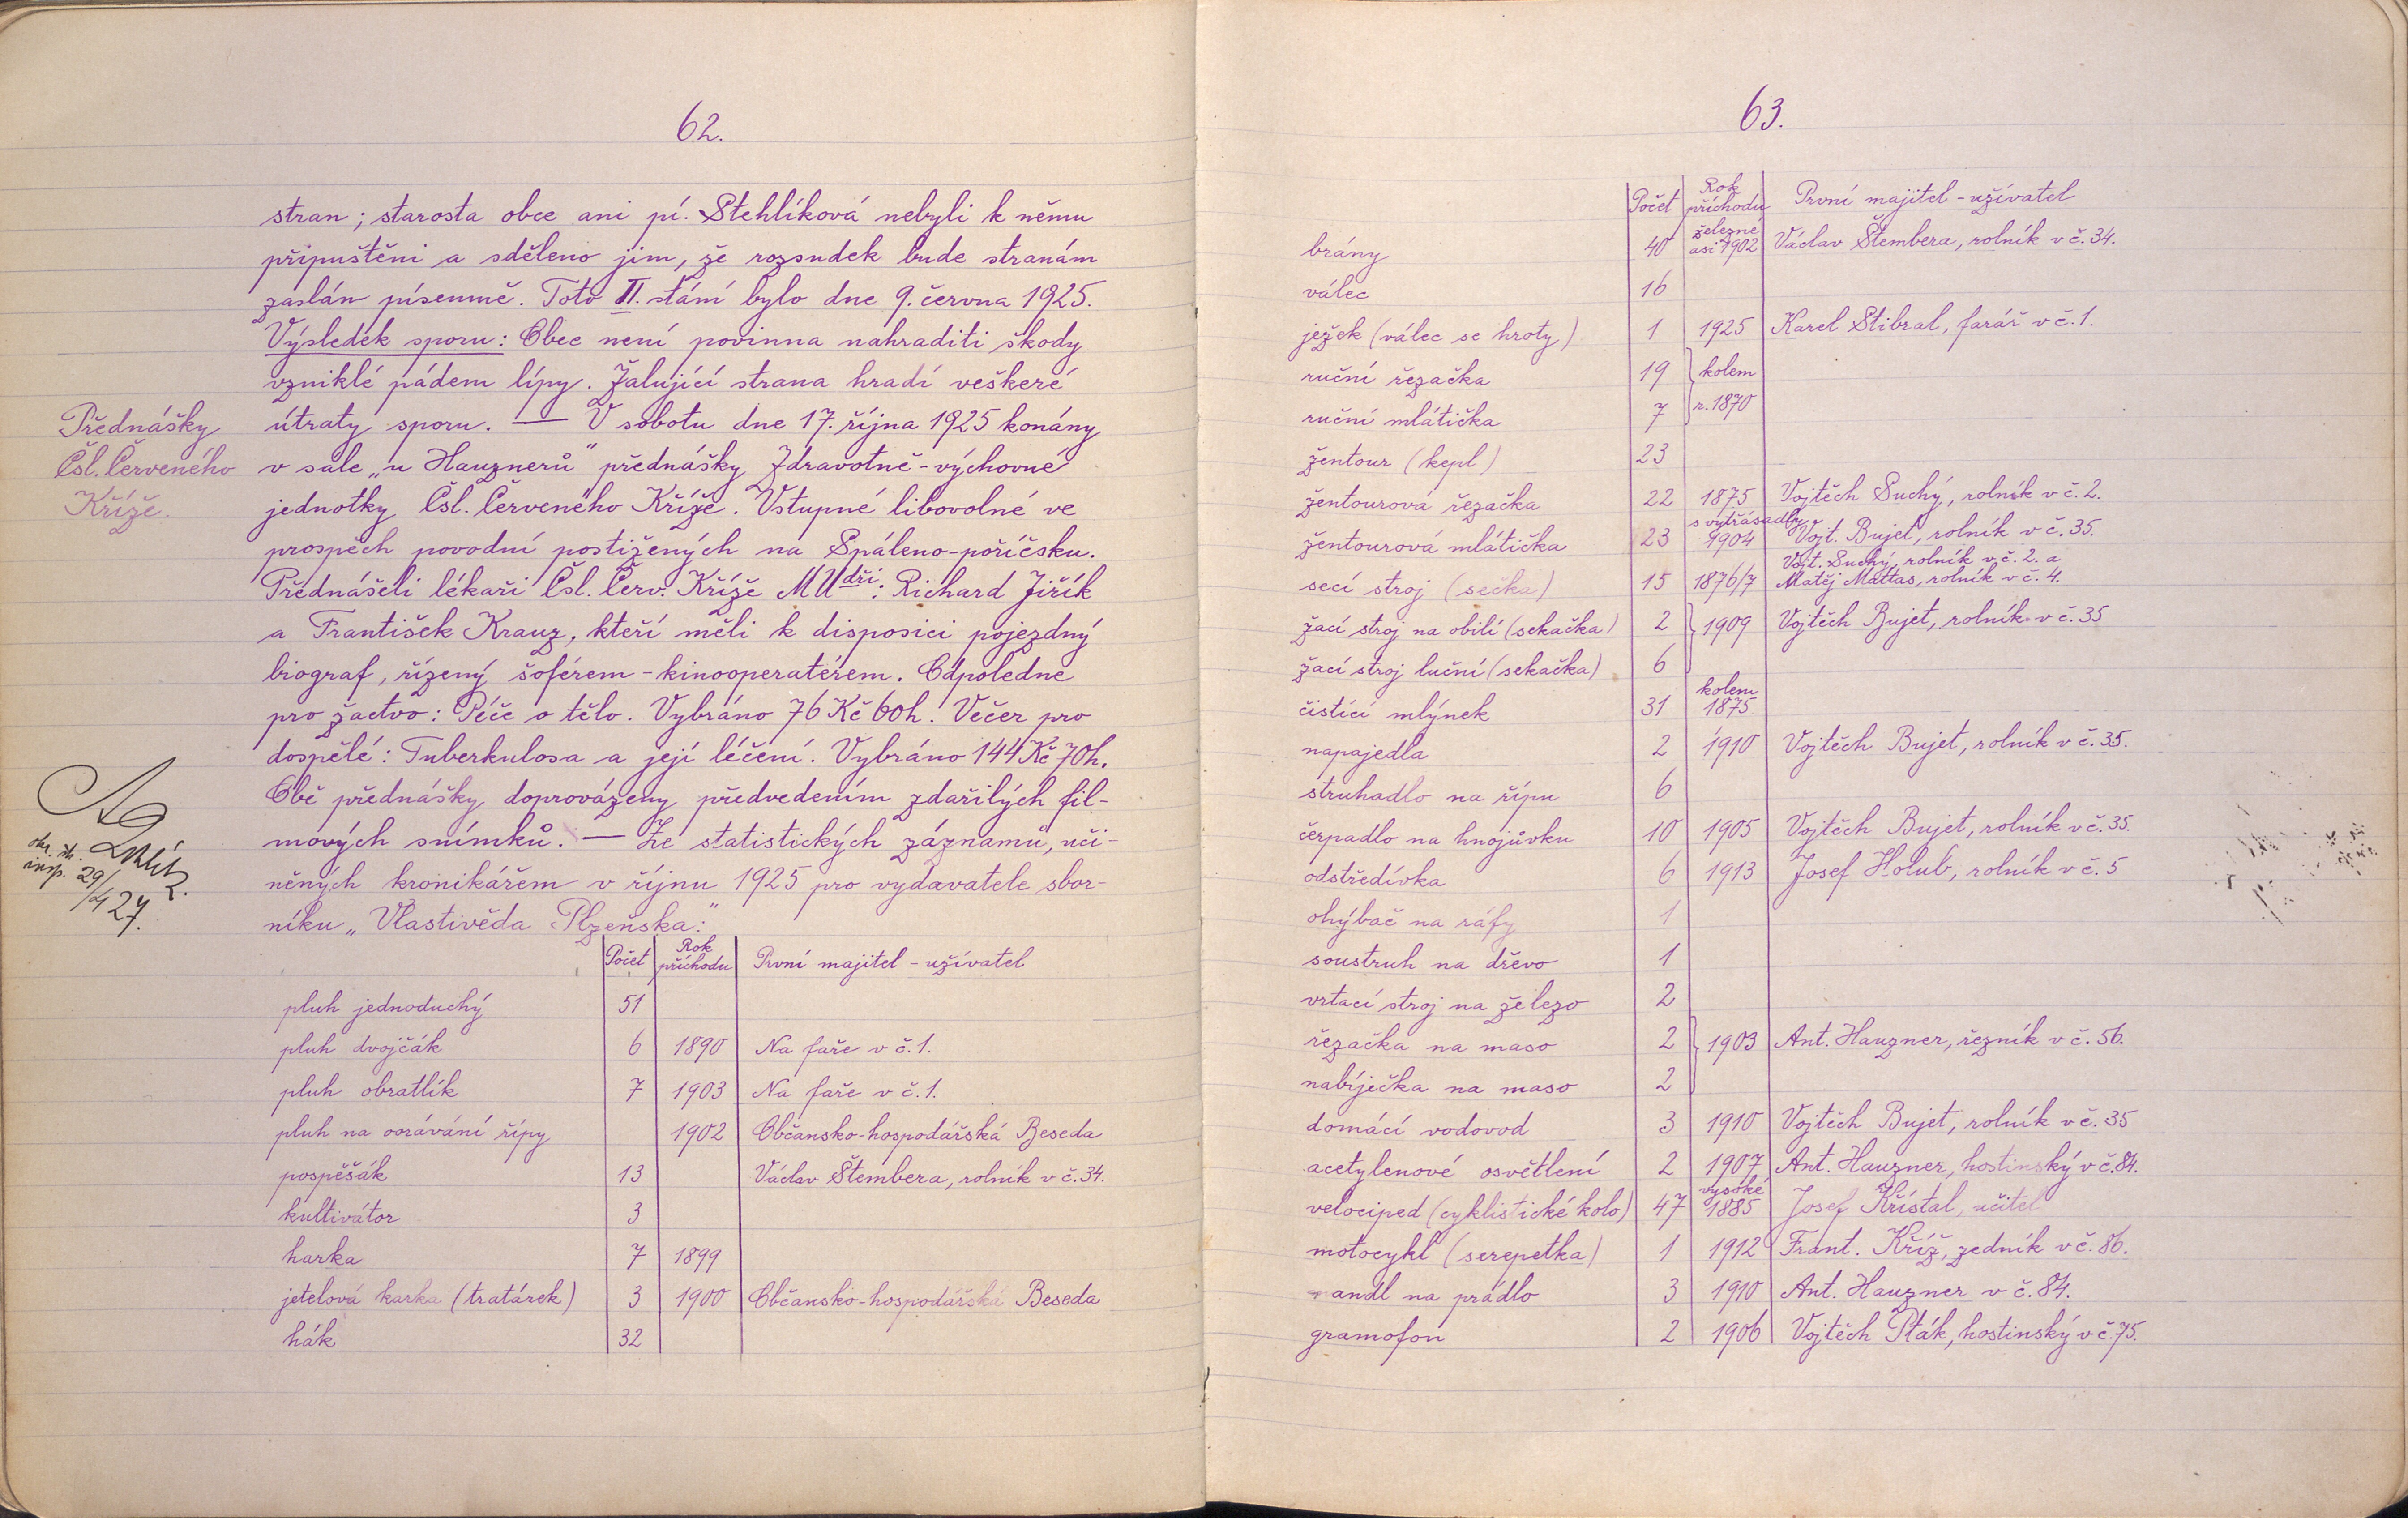 62.
stran; starosta obce ani pí. Stehlíková nebyli k němu
připuštěni a sděleno jim, že rozsudek bude stranám
zaslán písemně. Toto II. stání bylo dne 9. června 1925.
Výsledek sporu: Obec není povinna nahraditi škody
vzniklé pádem lípy. Žalující strana hradí veškeré
Přednášky útraty sporu. — V sobotu dne 17. října 1925 konány
Čsl. Červeného v sále „u Hauznerů" přednášky Zdravotně-výchovné
Kříže. jednotky Čsl. Červeného Kříže. Vstupné libovolné ve
prospěch povodní postižených na Spáleno-poříčsku.
Přednášeli lékaři Čsl. Červ. Kříže MUdři: Richard Jiřík
a František Krauz, kteří měli k disposici pojezdný
biograf, řízený šoférem-kinooperatérem. Odpoledne
pro žactvo: Péče o tělo. Vybráno 76 Kč 60h. Večer pro
dospělé: Tuberkulosa a její léčení. Vybráno 144 Kč 70h.
Obě přednášky doprovázeny předvedením zdařilých fil-
mových snímků. — Ze statistických záznamů, uči-
něných kronikářem v říjnu 1925 pro vydavatele sbor-
níku „Vlastivěda Plzeňska:"
insp. 29/
/4 27.
Počet Rok příchodu První majitel - uživatel
pluh jednoduchý 51
pluh dvojčák 6 1890 Na faře v č. 1.
pluh obratlík 7 1903 Na faře v č. 1.
pluh na oorávání řípy 1902 Občansko-hospodářská Beseda
pospěšák 13 Václav Štembera, rolník v č. 34.
kultivátor 3
harka 7 1899
jetelová harka (tratárek) 3 1900 Občansko-hospodářská Beseda
hák 32
63.
Počet Rok příchodu První majitel - uživatel
brány 40 železné asi 1902 Václav Štembera, rolník v č. 34.
válec 16
ježek (válec se hroty) 1 1925 Karel Stibral, farář v č. 1.
ruční řezačka 19 kolem
ruční mlátička 7 r. 1870
žentour (kepl) 23
žentourová řezačka 22 1875 Vojtěch Suchý, rolník v č. 2.
žentourová mlátička 23 s vytřásadly 1904 Vojt. Bujet, rolník v č. 35.
secí stroj (sečka) 15 1876/7 Vojt. Suchý, rolník v č. 2. a Matěj Mattas, rolník v č. 4.
žací stroj na obilí (sekačka) 2 1909 Vojtěch Bujet, rolník v č. 35
žací stroj luční (sekačka) 6
čistící mlýnek 31 kolem 1875
napajedla 2 1910 Vojtěch Bujet, rolník v č. 35.
struhadlo na řípu 6
čerpadlo na hnojůvku 10 1905 Vojtěch Bujet, rolník v č. 35.
odstředívka 6 1913 Josef Holub, rolník v č. 5
ohýbač na ráfy 1
soustruh na dřevo 1
vrtací stroj na železo 2
řezačka na maso 2 1903 Ant. Hauzner, řezník v č. 56.
nabíječka na maso 2
domácí vodovod 3 1910 Vojtěch Bujet, rolník v č. 35
acetylenové osvětlení 2 1907 Ant. Hauzner, hostinský v č. 84.
velociped (cyklistické kolo) 47 vysoké 1885 Josef Křístal, učitel
motocykl (serepetka) 1 1912 Frant. Kříž, zedník v č. 86.
mandl na prádlo 3 1910 Ant. Hauzner v č. 84.
gramofon 2 1906 Vojtěch Pták, hostinský v č. 75.